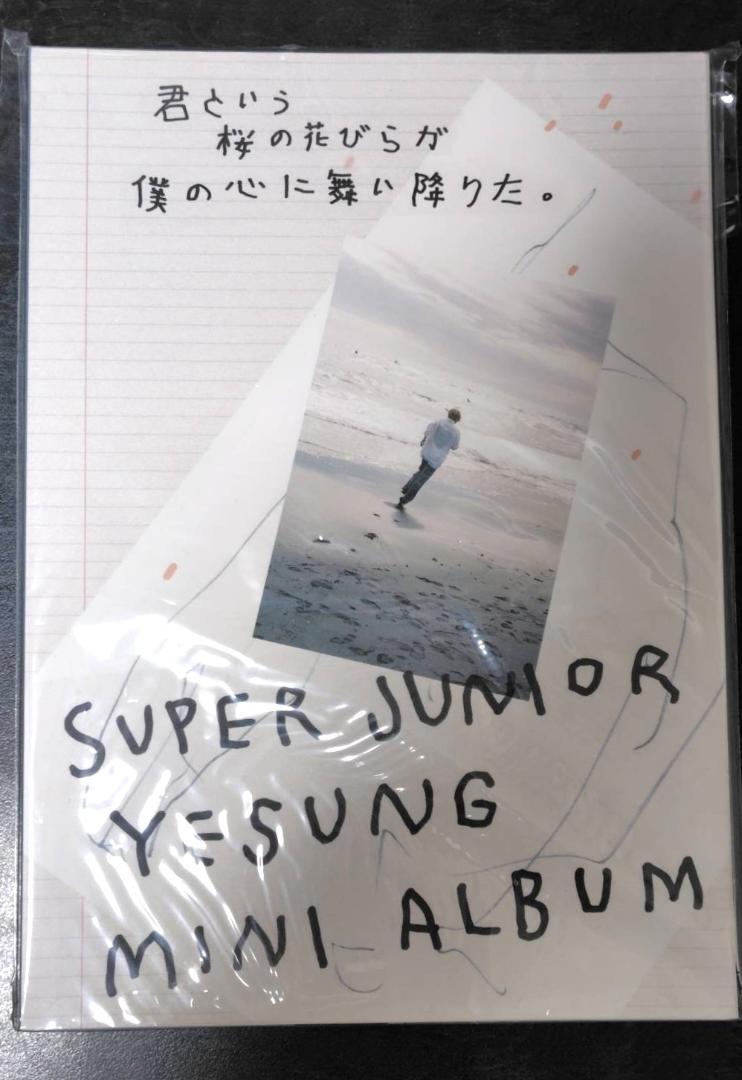 君という
桜の花びらが
僕の心に舞い降りた。
SUPER JUNIOR
YESUNG
MINI ALBUM